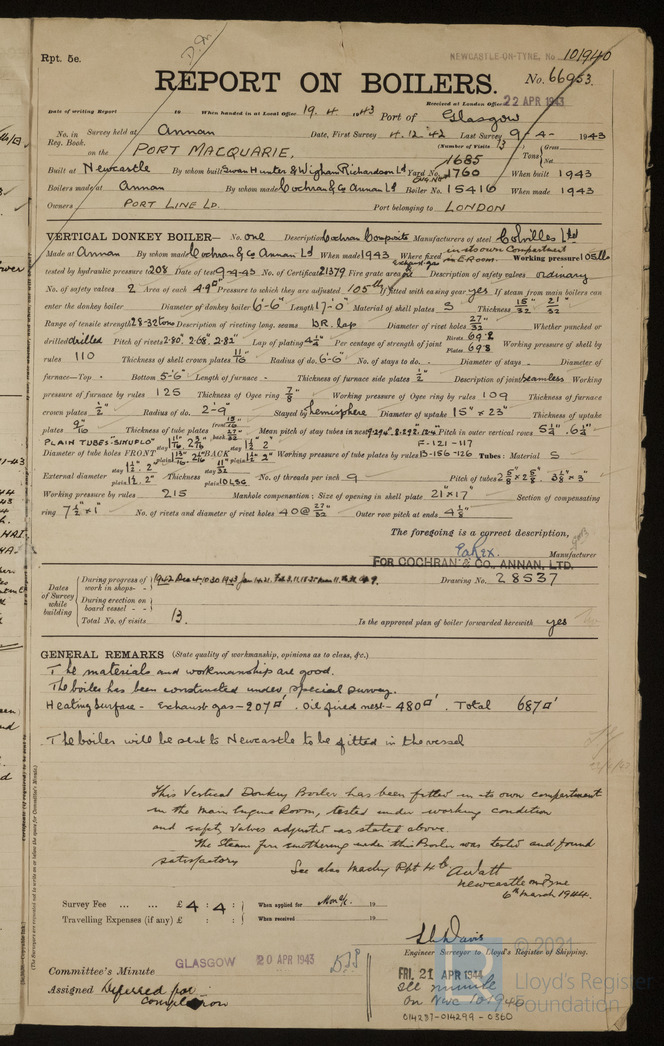 Rpt. 5c.
NEWCASTLE-ON-TYNE. No. 101940
REPORT ON BOILERS.
No. 66953.
Received at London Office 22 APR 1943
Date of writing Report 19 When handed in at Local Office 19.4.1943 Port of Glasgow
No. in Reg. Book. Survey held at Annan Date, First Survey 4.12.42 Last Survey 9-4-1943
(Number of Visits 13)
on the PORT MACQUARIE. Tons Gross Net
Built at Newcastle By whom built Swan Hunter & Wigham Richardson Ld Yard No. 1685 Eng. No. 1760 When built 1943
Boilers made at Annan By whom made Cochran & Co Annan Ld Boiler No. 15416 When made 1943
Owners PORT LINE LD. Port belonging to LONDON
VERTICAL DONKEY BOILER— No. one Description Cochran Composite Manufacturers of steel Colvilles Ltd
Made at Annan By whom made Cochran & Co Annan Ld When made 1943 Where fixed in its own Compartment in E.Room. Working pressure 105 lb
tested by hydraulic pressure to 208 Date of test 9-4-43 No. of Certificate 21379 Fire grate area Description of safety valves ordinary
No. of safety valves 2 Area of each 4.9 Pressure to which they are adjusted 105 lb If fitted with easing gear yes If steam from main boilers can
enter the donkey boiler Diameter of donkey boiler 6'-6" Length 17'-0" Material of shell plates S Thickness 15/32 21/32
Range of tensile strength 28-32 ton Description of riveting long. seams DR. lap Diameter of rivet holes 27/32 Whether punched or
drilled drilled Pitch of rivets 2.80" 2.68" 2.82" Lap of plating 4¼" Per centage of strength of joint Rivets 69.2 Plates 69.8 Working pressure of shell by
rules 110 Thickness of shell crown plates 11/16 Radius of do. 6'-6" No. of stays to do. - Diameter of stays - Diameter of
furnace—Top - Bottom 5'-6" Length of furnace - Thickness of furnace side plates ½" Description of joint seamless Working
pressure of furnace by rules 125 Thickness of Ogee ring 7/8" Working pressure of Ogee ring by rules 109 Thickness of furnace
crown plates ½" Radius of do. 2'-9" Stayed by hemisphere Diameter of uptake 15" x 23" Thickness of uptake
plates 9/16" Thickness of tube plates front 15/16 back 27/32 Mean pitch of stay tubes in nests Pitch in outer vertical rows 5¼" . 6¼"
PLAIN TUBES "SINUFLO" F-121-117
Diameter of tube holes FRONT BACK Working pressure of tube plates by rules B-156-126 Tubes: Material S
External diameter stay 1½". 2" plain 1½". 2" Thickness stay 11/32 plain 10 LSG No. of threads per inch 9 Pitch of tubes 2⅝" x 2⅝". 3⅛" x 3"
Working pressure by rules 215 Manhole compensation: Size of opening in shell plate 21" x 17" Section of compensating
ring 7½" x 1" No. of rivets and diameter of rivet holes 40 @ 27/32 Outer row pitch at ends 4⅛"
The foregoing is a correct description,
Manufacturer
FOR COCHRAN & CO., ANNAN, LTD.
Dates of Survey while building
During progress of work in shops- -
During erection on board vessel - -
Total No. of visits 13.
Drawing No. 28537
Is the approved plan of boiler forwarded herewith yes
GENERAL REMARKS (State quality of workmanship, opinions as to class, &c.)
The materials and workmanship are good.
The boiler has been constructed under special survey.
Heating surface - Exhaust gas - 207□'. Oil fired nest - 480□'. Total 687□'
The boiler will be sent to Newcastle to be fitted in the vessel
This Vertical Donkey Boiler has been fitted in its own compartment
in the Main Engine Room, tested under working condition
and safety valves adjusted as stated above.
The steam fire smothering under this Boiler was tested and found
satisfactory
See also Machy Rpt 4b. A. Watt
Newcastle on Tyne
6th March 1944.
Survey Fee ... ... £ 4 : 4 : When applied for 19
Travelling Expenses (if any) £ : : When received 19
Davis
Engineer Surveyor to Lloyd's Register of Shipping.
GLASGOW 20 APR 1943
Committee's Minute
Assigned Deferred for
Completion
FRI. 21 APR 1944
See minute
on Nwc 101940
014287-014299-0360
© 2021
Lloyd's Register
Foundation